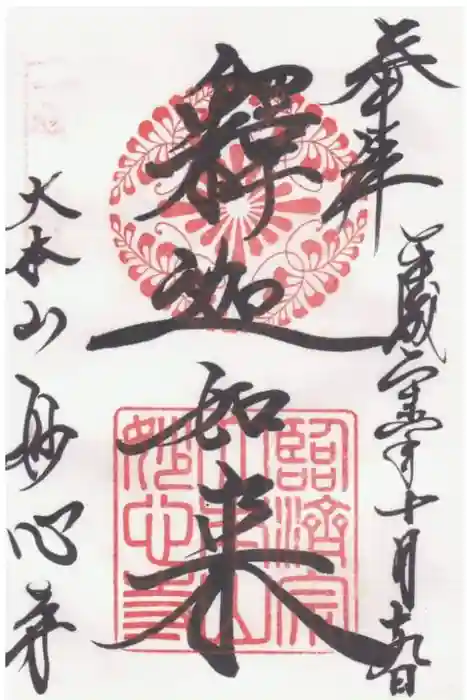 奉拝
平成二十年十月十九日
釋迦如来
大本山妙心寺
臨濟宗
大本山
妙心寺